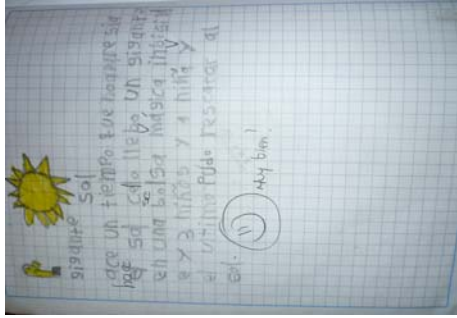 gigante sol
ace un tiempo fue
sol
se llebo un gigante
en una bolsa mágica
e y 3 niños y 1 niña y
el ultimo pudo rescatar al
sol.
muy bien!